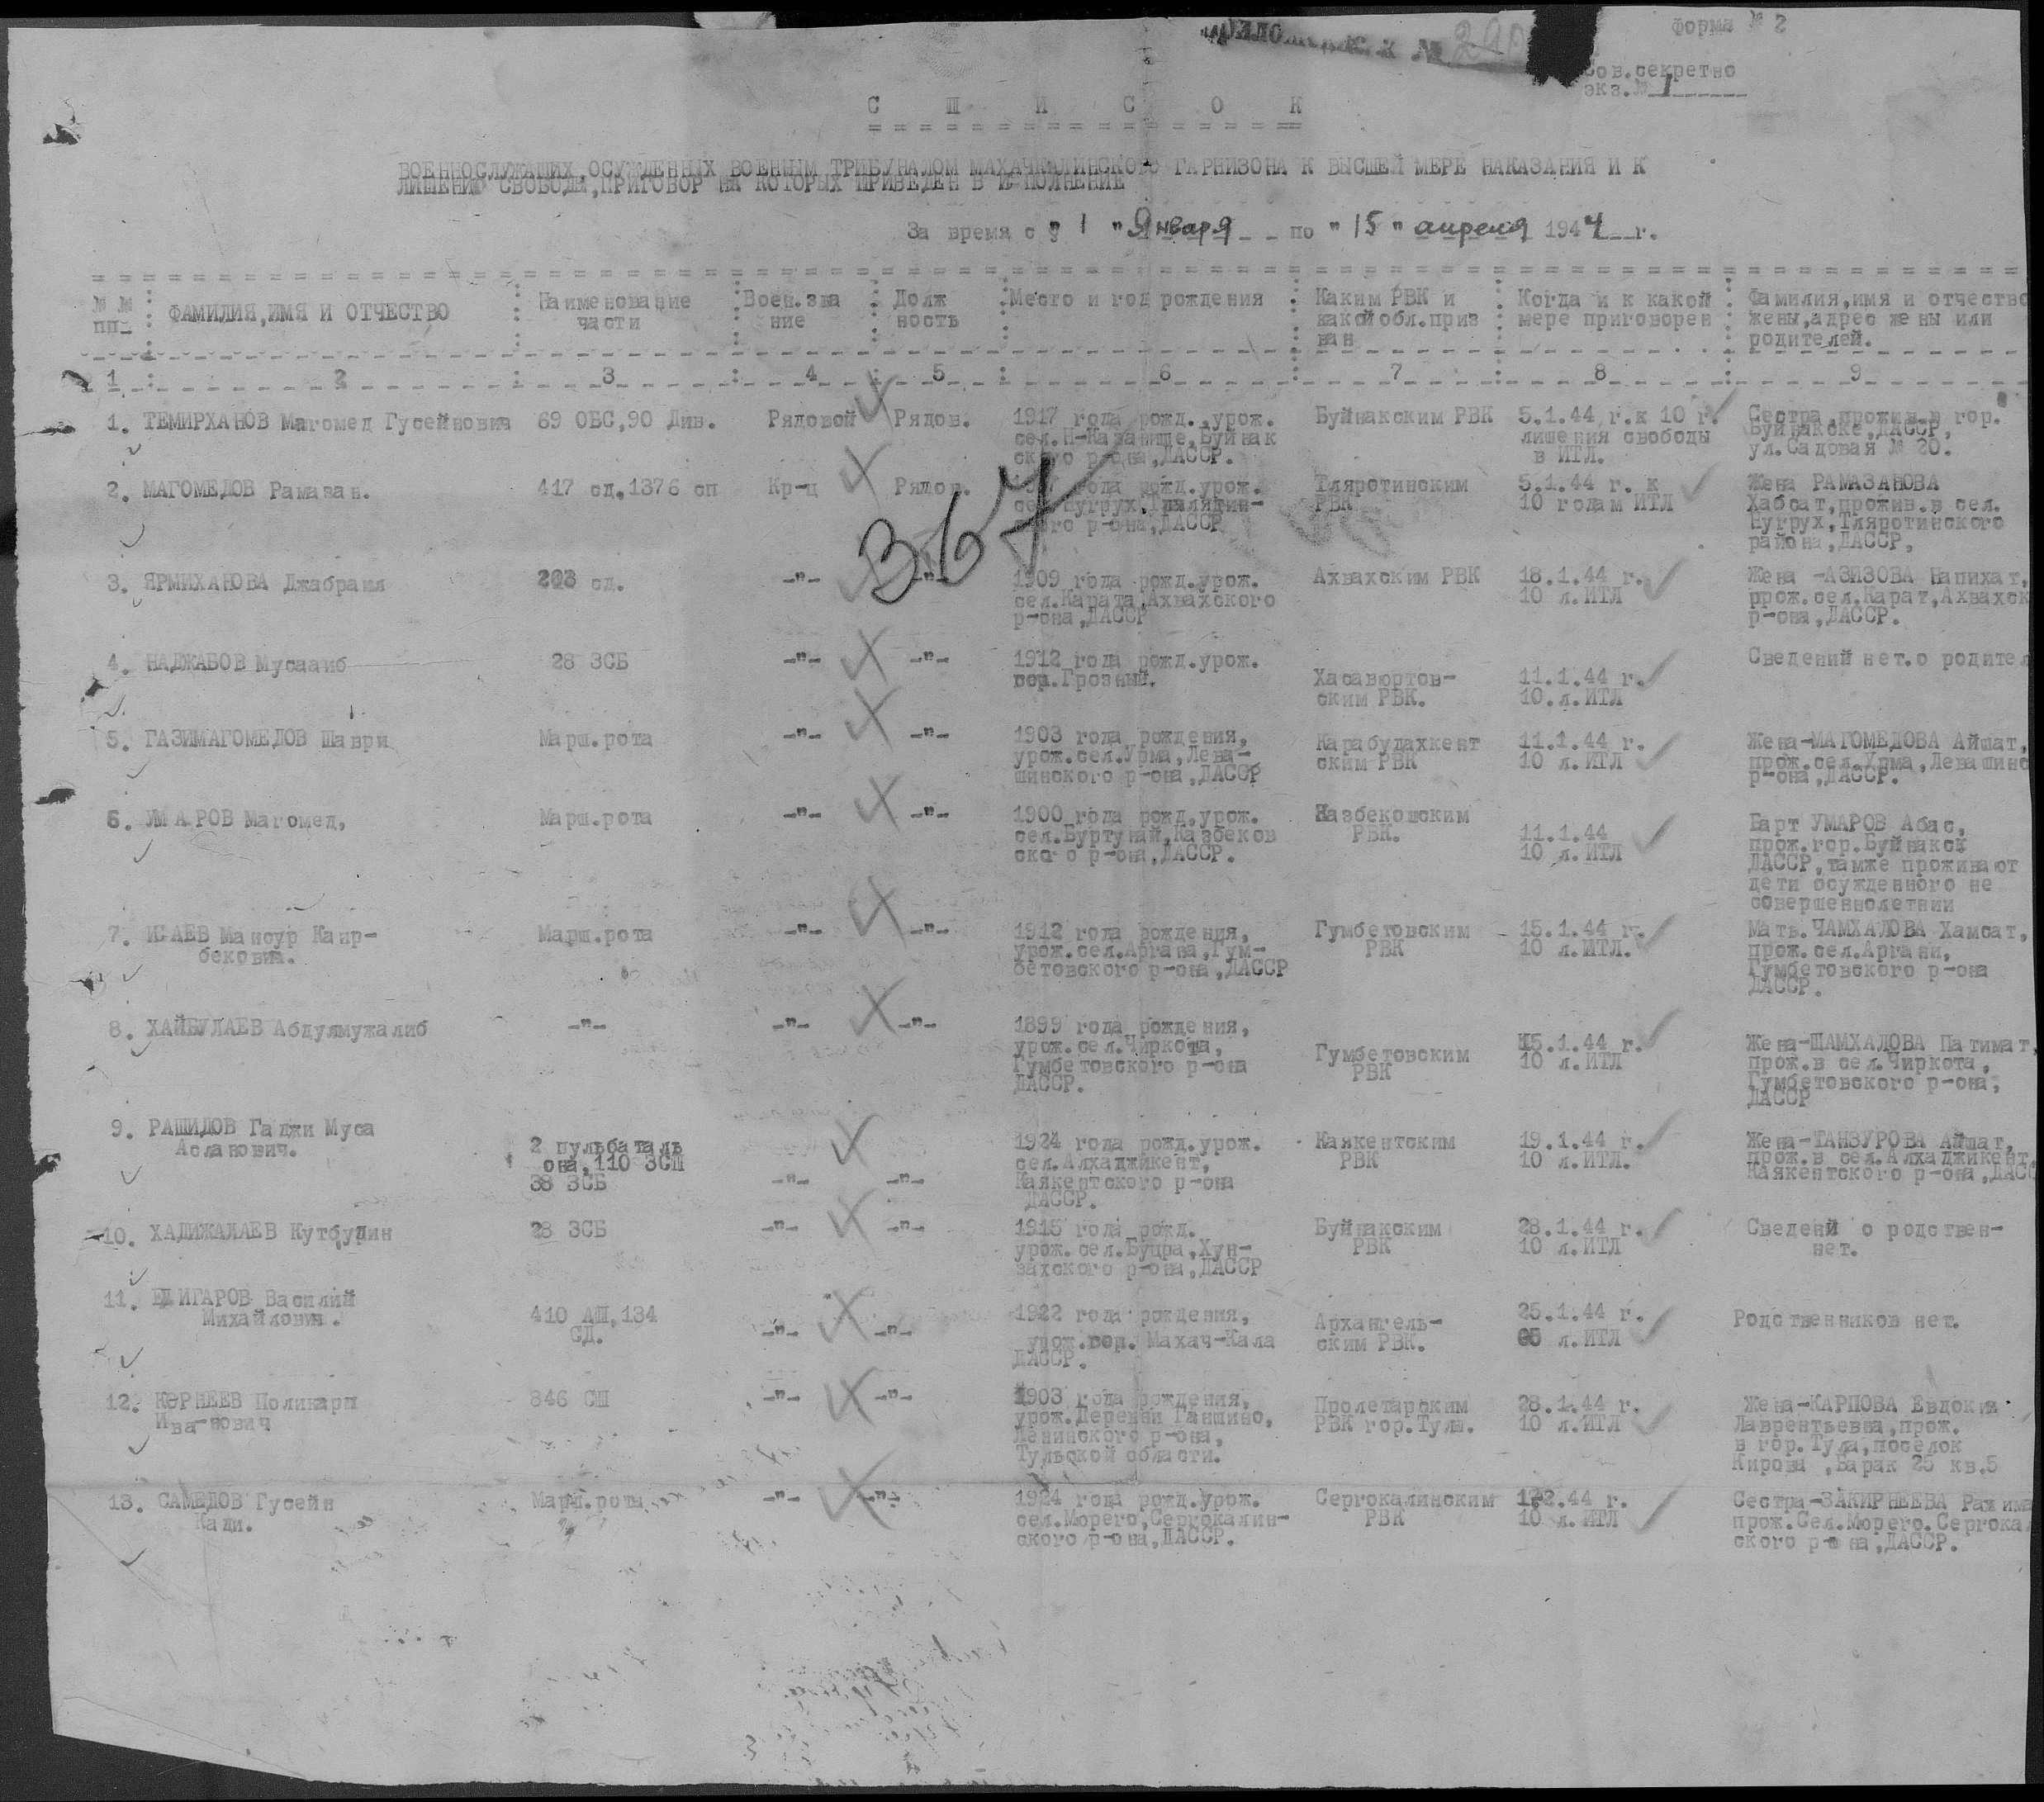 Форма № 2
Сов.секретно
экз.№ 1
С П И С О К
ВОЕННОСЛУЖАЩИХ,ОСУЖДЕННЫХ ВОЕННЫМ ТРИБУНАЛОМ МАХАЧКАЛИНСКОГО ГАРНИЗОНА К ВЫСШЕЙ МЕРЕ НАКАЗАНИЯ И К
ЛИШЕНИЮ СВОБОДЫ,ПРИГОВОР НА КОТОРЫХ ПРИВЕДЕН В ИСПОЛНЕНИЕ
За время с " 1 " Января по " 15 " апреля 1944 г.
№ № пп ФАМИЛИЯ,ИМЯ И ОТЧЕСТВО Наименование части Воен.зва ние Долж ность Место и год рождения Каким РВК и какой обл.приз ван Когда и к какой мере приговорен Фамилия,имя и отчество жены,адрес жены или родителей.
1 2 3 4 5 6 7 8 9
367
1. ТЕМИРХАНОВ Магомед Гусейнович 69 ОБС,90 Див. Рядовой Рядов. 1917 года рожд.,урож. Буйнакским РВК 5.1.44 г.к 10 г. Сестра,прожив.в гор.
сел.Н-Казанище,Буйнак лишения свободы Буйнакске,ДАССР,
ского р-она,ДАССР. в ИТЛ. ул.Садовая № 20.
2. МАГОМЕДОВ Рамазан. 417 сд,1376 сп Кр-ц Рядов. года рожд.урож. Тляротинским 5.1.44 г. к Жена РАМАЗАНОВА
РВК 10 годам ИТЛ Хабсат,прожив.в сел.
р-она,ДАССР Нугрух,Тляротинского
района,ДАССР,
3. ЯРМИХАНОВА Джабраил сд. -"- -"- 1909 года рожд.урож. Ахвахским РВК 18.1.44 г. Жена -АЗИЗОВА Напихат,
сел.Карата,Ахвахского 10 л.ИТЛ прож.сел.Карат,Ахвахск
р-она,ДАССР р-она,ДАССР.
4. НАДЖАБОВ Мусааиб 28 ЗСБ -"- -"- 1912 года рожд.урож. Сведений нет.о родител
гор.Грозный. Хасавюртов- 11.1.44 г.
ским РВК. 10.л.ИТЛ
5. ГАЗИМАГОМЕДОВ Шаври Марш.рота -"- -"- 1903 года рождения, Карабудахкент 11.1.44 г. Жена-МАГОМЕДОВА Айшат,
урож.сел.Урма,Лева- ским РВК 10 л.ИТЛ прож.сел.Урма,Левашинс
шинского р-она,ДАССР р-она,ДАССР.
6. УМАРОВ Магомед, Марш.рота -"- -"- 1900 года рожд.урож. Казбековским Барт УМАРОВ Абас,
сел.Буртунай,Казбеков РВК. 11.1.44 прож.гор.Буйнакск
ского р-она,ДАССР. 10 л.ИТЛ ДАССР,тамже проживают
дети осужденного не
совершеннолетнии
7. ИСАЕВ Мансур Каир- Марш.рота -"- -"- 1912 года рождения, Гумбетовским 15.1.44 г. Мать.ЧАМХАЛОВА Хамсат,
бекович. урож.сел.Аргана,Гум- РВК 10 л.ИТЛ. прож.сел.Аргани,
бетовского р-она,ДАССР Гумбетовского р-она
ДАССР.
8. ХАЙБУЛАЕВ Абдулмужалиб -"- -"- -"- 1899 года рождения,
урож.сел.Чиркота, 15.1.44 г. Жена-ШАМХАЛОВА Патимат,
Гумбетовского р-она Гумбетовским 10 л.ИТЛ прож.в сел.Чиркота,
ДАССР. РВК Гумбетовского р-она,
ДАССР
9. РАШИДОВ Гаджи Муса 2 пульбаталь 1924 года рожд.урож. Каякентским 19.1.44 г. Жена-ТАНЗУРОВА Айшат,
Асланович. она,110 ЗСП сел.Алхаджикент, РВК 10 л.ИТЛ. прож.в сел.Алхаджикент,
38 ЗСБ -"- -"- Каякентского р-она Каякентского р-она,ДАСС
ДАССР.
10. ХАДИЖАЛАЕВ Кутбудин 28 ЗСБ -"- -"- 1915 года рожд. Буйнакским 28.1.44 г. Сведени о родствен-
урож.сел.Буцра,Хун- РВК 10 л.ИТЛ нет.
захского р-она,ДАССР
11. ЕДИГАРОВ Василий 410 АП,134 -"- -"- 1922 года рождения, Архангель- 25.1.44 г. Родственников нет.
Михайлович. СД. урож.гор. Махач-Кала ским РВК. л.ИТЛ
ДАССР.
12. КОРНЕЕВ Поликарп 846 СП -"- -"- 1903 года рождения, Пролетарским 28.1.44 г. Жена-КАРПОВА Евдокия
Ива-нович урож.Деревни Ганшино, РВК гор.Тулы. 10 л.ИТЛ Лаврентьевна,прож.
Ленинского р-она, в гор.Тула,поселок
Тульской области. Кирова ,Барак 25 кв.5
13. САМЕДОВ Гусейн Марш.рота -"- -"- 1924 года рожд.урож. Сергокалинским .44 г. Сестра-ЗАКИРНЕЕВА Рахима
Кади. сел.Морего,Сергокалин- РВК 10 л.ИТЛ прож.Сел.Морего.Сергока
ского р-она,ДАССР. ского р-она,ДАССР.